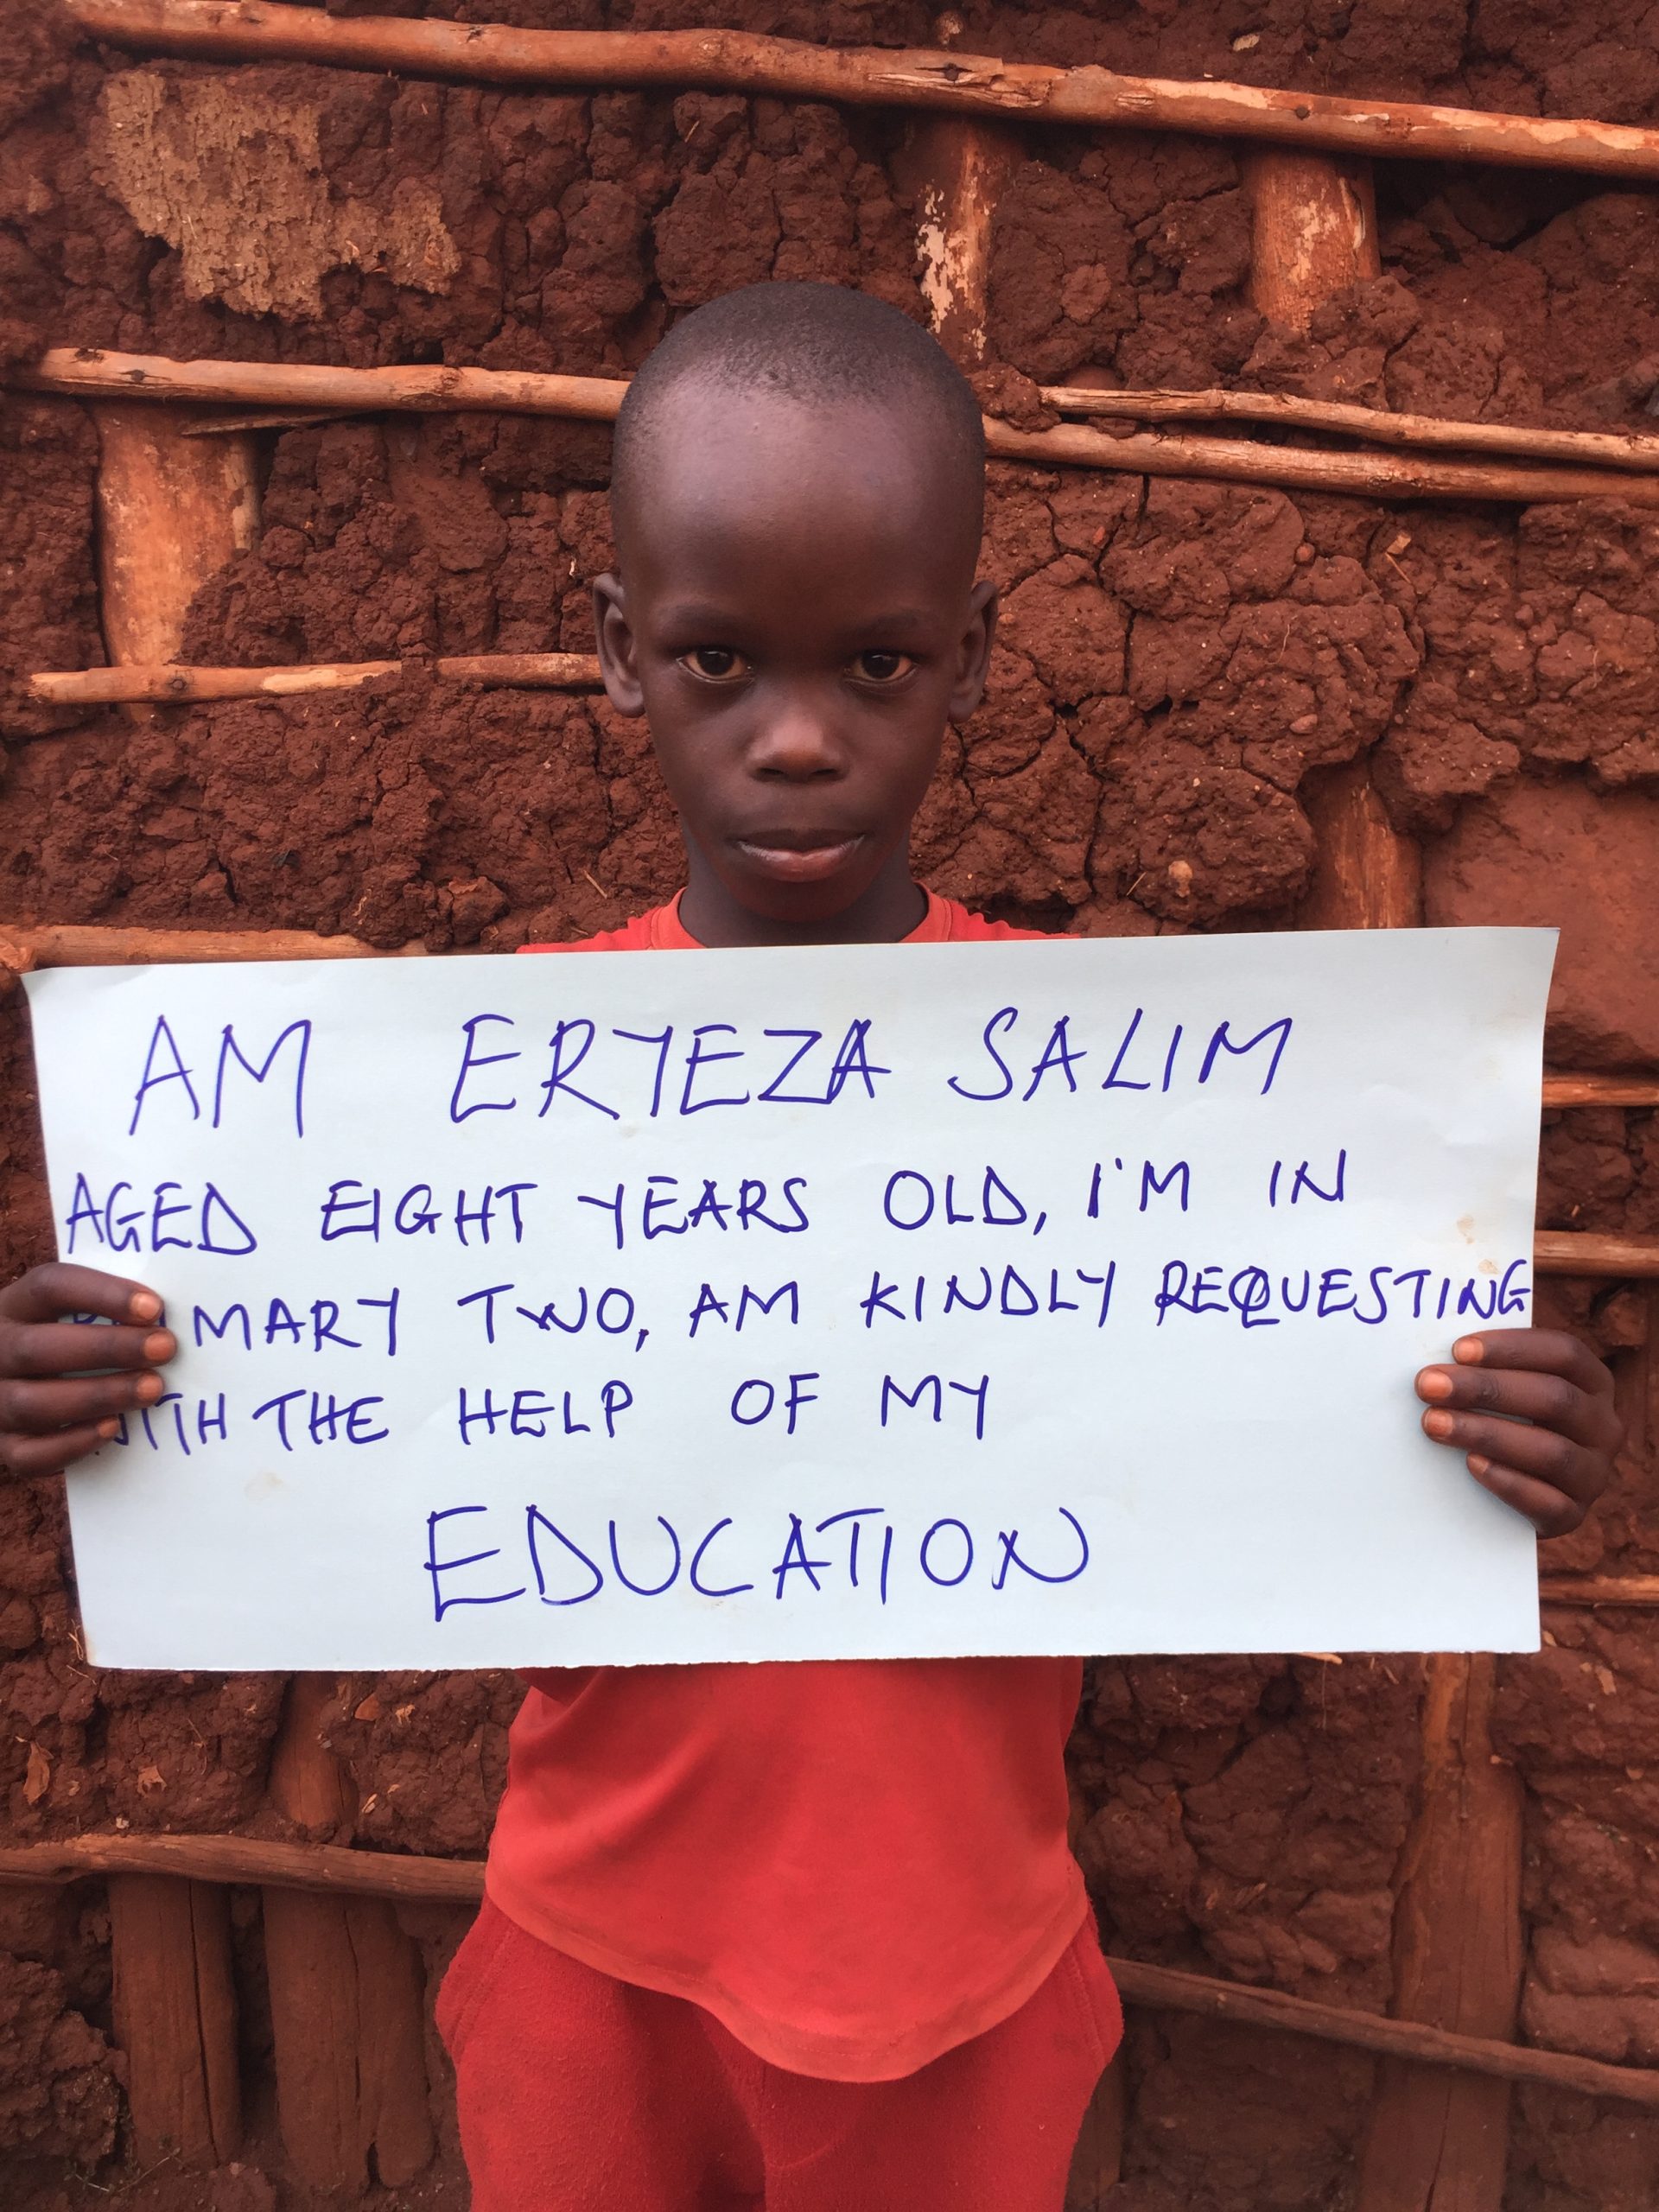 AM ERYEZA SALIM
AGED EIGHT YEARS OLD, I'M IN
PRIMARY TWO, AM KINDLY REQUESTING
WITH THE HELP OF MY
EDUCATION